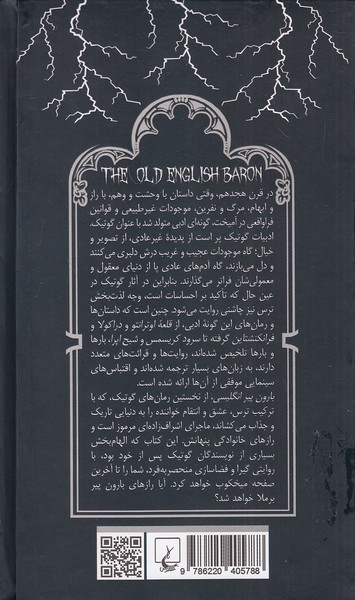 THE OLD ENGLISH BARON
در قرن هجدهم، وقتی داستان با وحشت و وهم، با راز
و ابهام، مرگ و نفرین، موجودات غیرطبیعی و قوانین
فراواقعی درآمیخت، گونه‌ای ادبی متولد شد با عنوان گوتیک.
ادبیات گوتیک پر است از پدیدهٔ غیرعادی، از تصویر و
خیال؛ گاه موجودات عجیب و غریب درش دلبری می‌کنند
و دل می‌بازند، گاه آدم‌های عادی پا از دنیای معقول و
معمولی‌شان فراتر می‌گذارند. بنابراین در آثار گوتیک در
عین حال که تأکید بر احساسات است، وجه لذت‌بخش
ترس نیز چاشنی روایت می‌شود. چنین است که داستان‌ها
و رمان‌های این گونهٔ ادبی، از قلعهٔ اوترانتو و دراکولا و
فرانکنشتاین گرفته تا سرود کریسمس و شبح اپرا، بارها
و بارها تلخیص شده‌اند، روایت‌ها و قرائت‌های متعدد
دارند، به زبان‌های بسیار ترجمه شده‌اند و اقتباس‌های
سینمایی موفقی از آن‌ها ارائه شده است.
بارون پیر انگلیسی، از نخستین رمان‌های گوتیک، که با
ترکیب ترس، عشق و انتقام خواننده را به دنیایی تاریک
و جذاب می‌کشاند، ماجرای اشراف‌زاده‌ای مرموز است و
رازهای خانوادگی پنهانش. این کتاب که الهام‌بخش
بسیاری از نویسندگان گوتیک پس از خود بود، با
روایتی گیرا و فضاسازی منحصربه‌فرد، شما را تا آخرین
صفحه میخکوب خواهد کرد. آیا رازهای بارون پیر
برملا خواهد شد؟
9 786220 405788